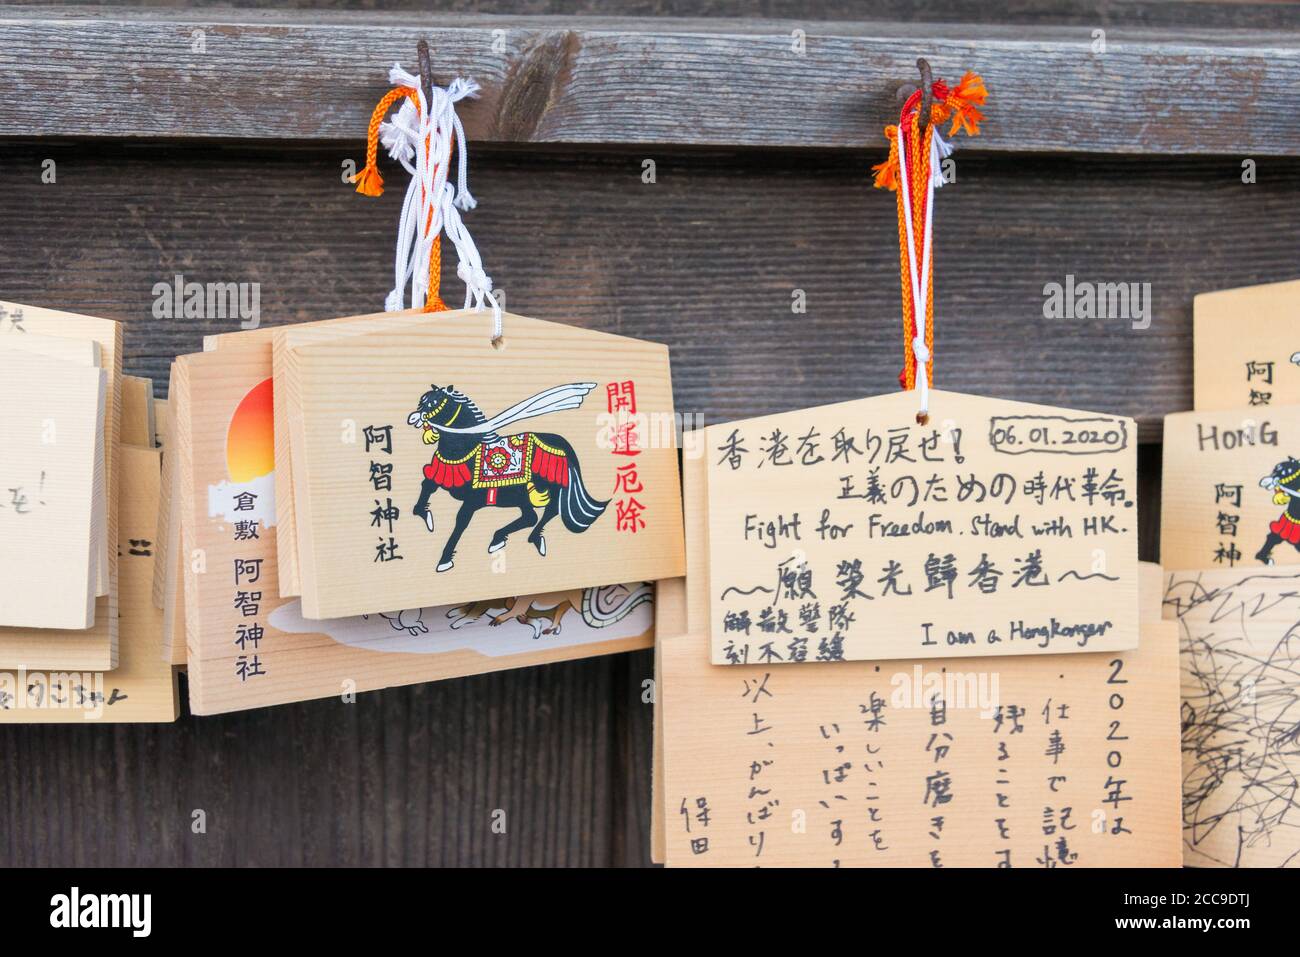 開運厄除
阿智神社
倉敷 阿智神社
香港を取り戻せ!
06.01.2020
正義のための時代革命。
Fight for Freedom. Stand with HK.
~願 榮光歸香港~
解散警隊
刻不容緩
I am a Hongkonger
2020年は
・仕事で記憶
残ることをす
・自分磨きを
・楽しいことを
いっぱいする
以上、がんばり
保田
HONG
阿智神
阿
智
alamy
Image ID: 2CC9DTJ
www.alamy.com